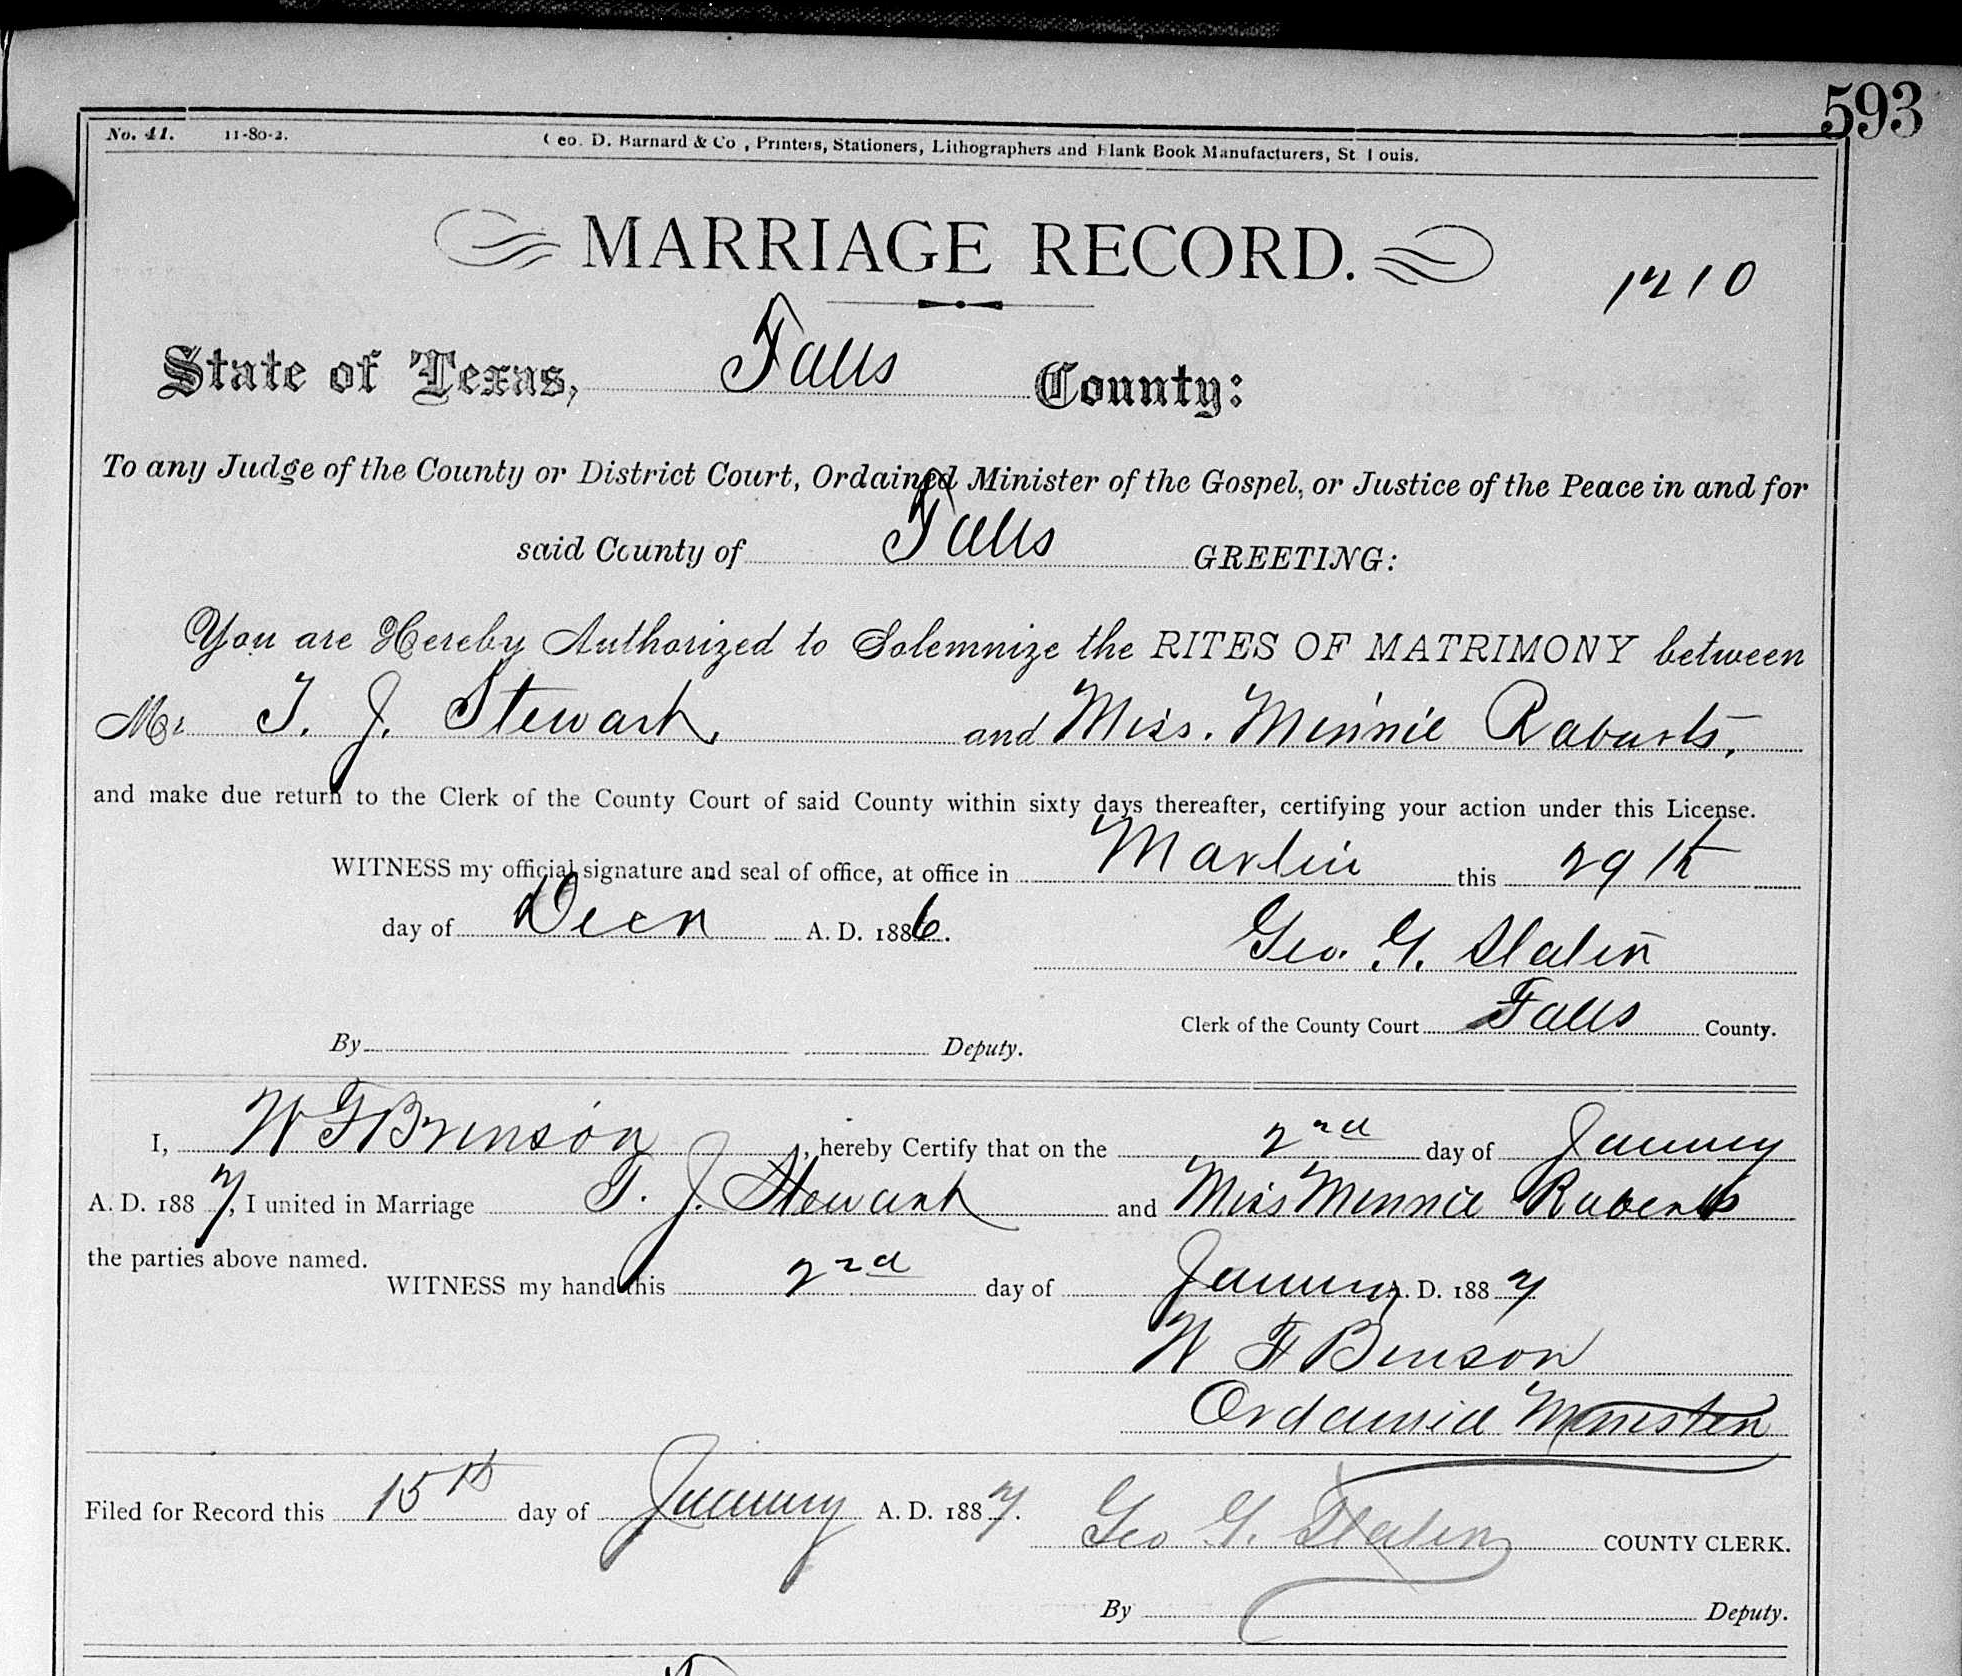 593
No. 41. 11-80-2. Geo. D. Barnard & Co., Printers, Stationers, Lithographers and Blank Book Manufacturers, St. Louis.
MARRIAGE RECORD.
1210
State of Texas, Falls County:
To any Judge of the County or District Court, Ordained Minister of the Gospel, or Justice of the Peace in and for
said County of Falls GREETING:
You are Hereby Authorized to Solemnize the RITES OF MATRIMONY between
Mr. T. J. Stewart, and Miss. Minnie Roberts,
and make due return to the Clerk of the County Court of said County within sixty days thereafter, certifying your action under this License.
WITNESS my official signature and seal of office, at office in Marlin this 29th
day of Decr A. D. 1886.
Geo. G.
Clerk of the County Court Falls County.
By Deputy.
I, W F Brinson, hereby Certify that on the 2nd day of January
A. D. 1887, I united in Marriage T. J. Stewart and Miss Minnie Roberts
the parties above named.
WITNESS my hand this 2nd day of January A. D. 1887
W F Brinson
Ordained Minister
Filed for Record this 15th day of January A. D. 1887. Geo G. COUNTY CLERK.
By Deputy.